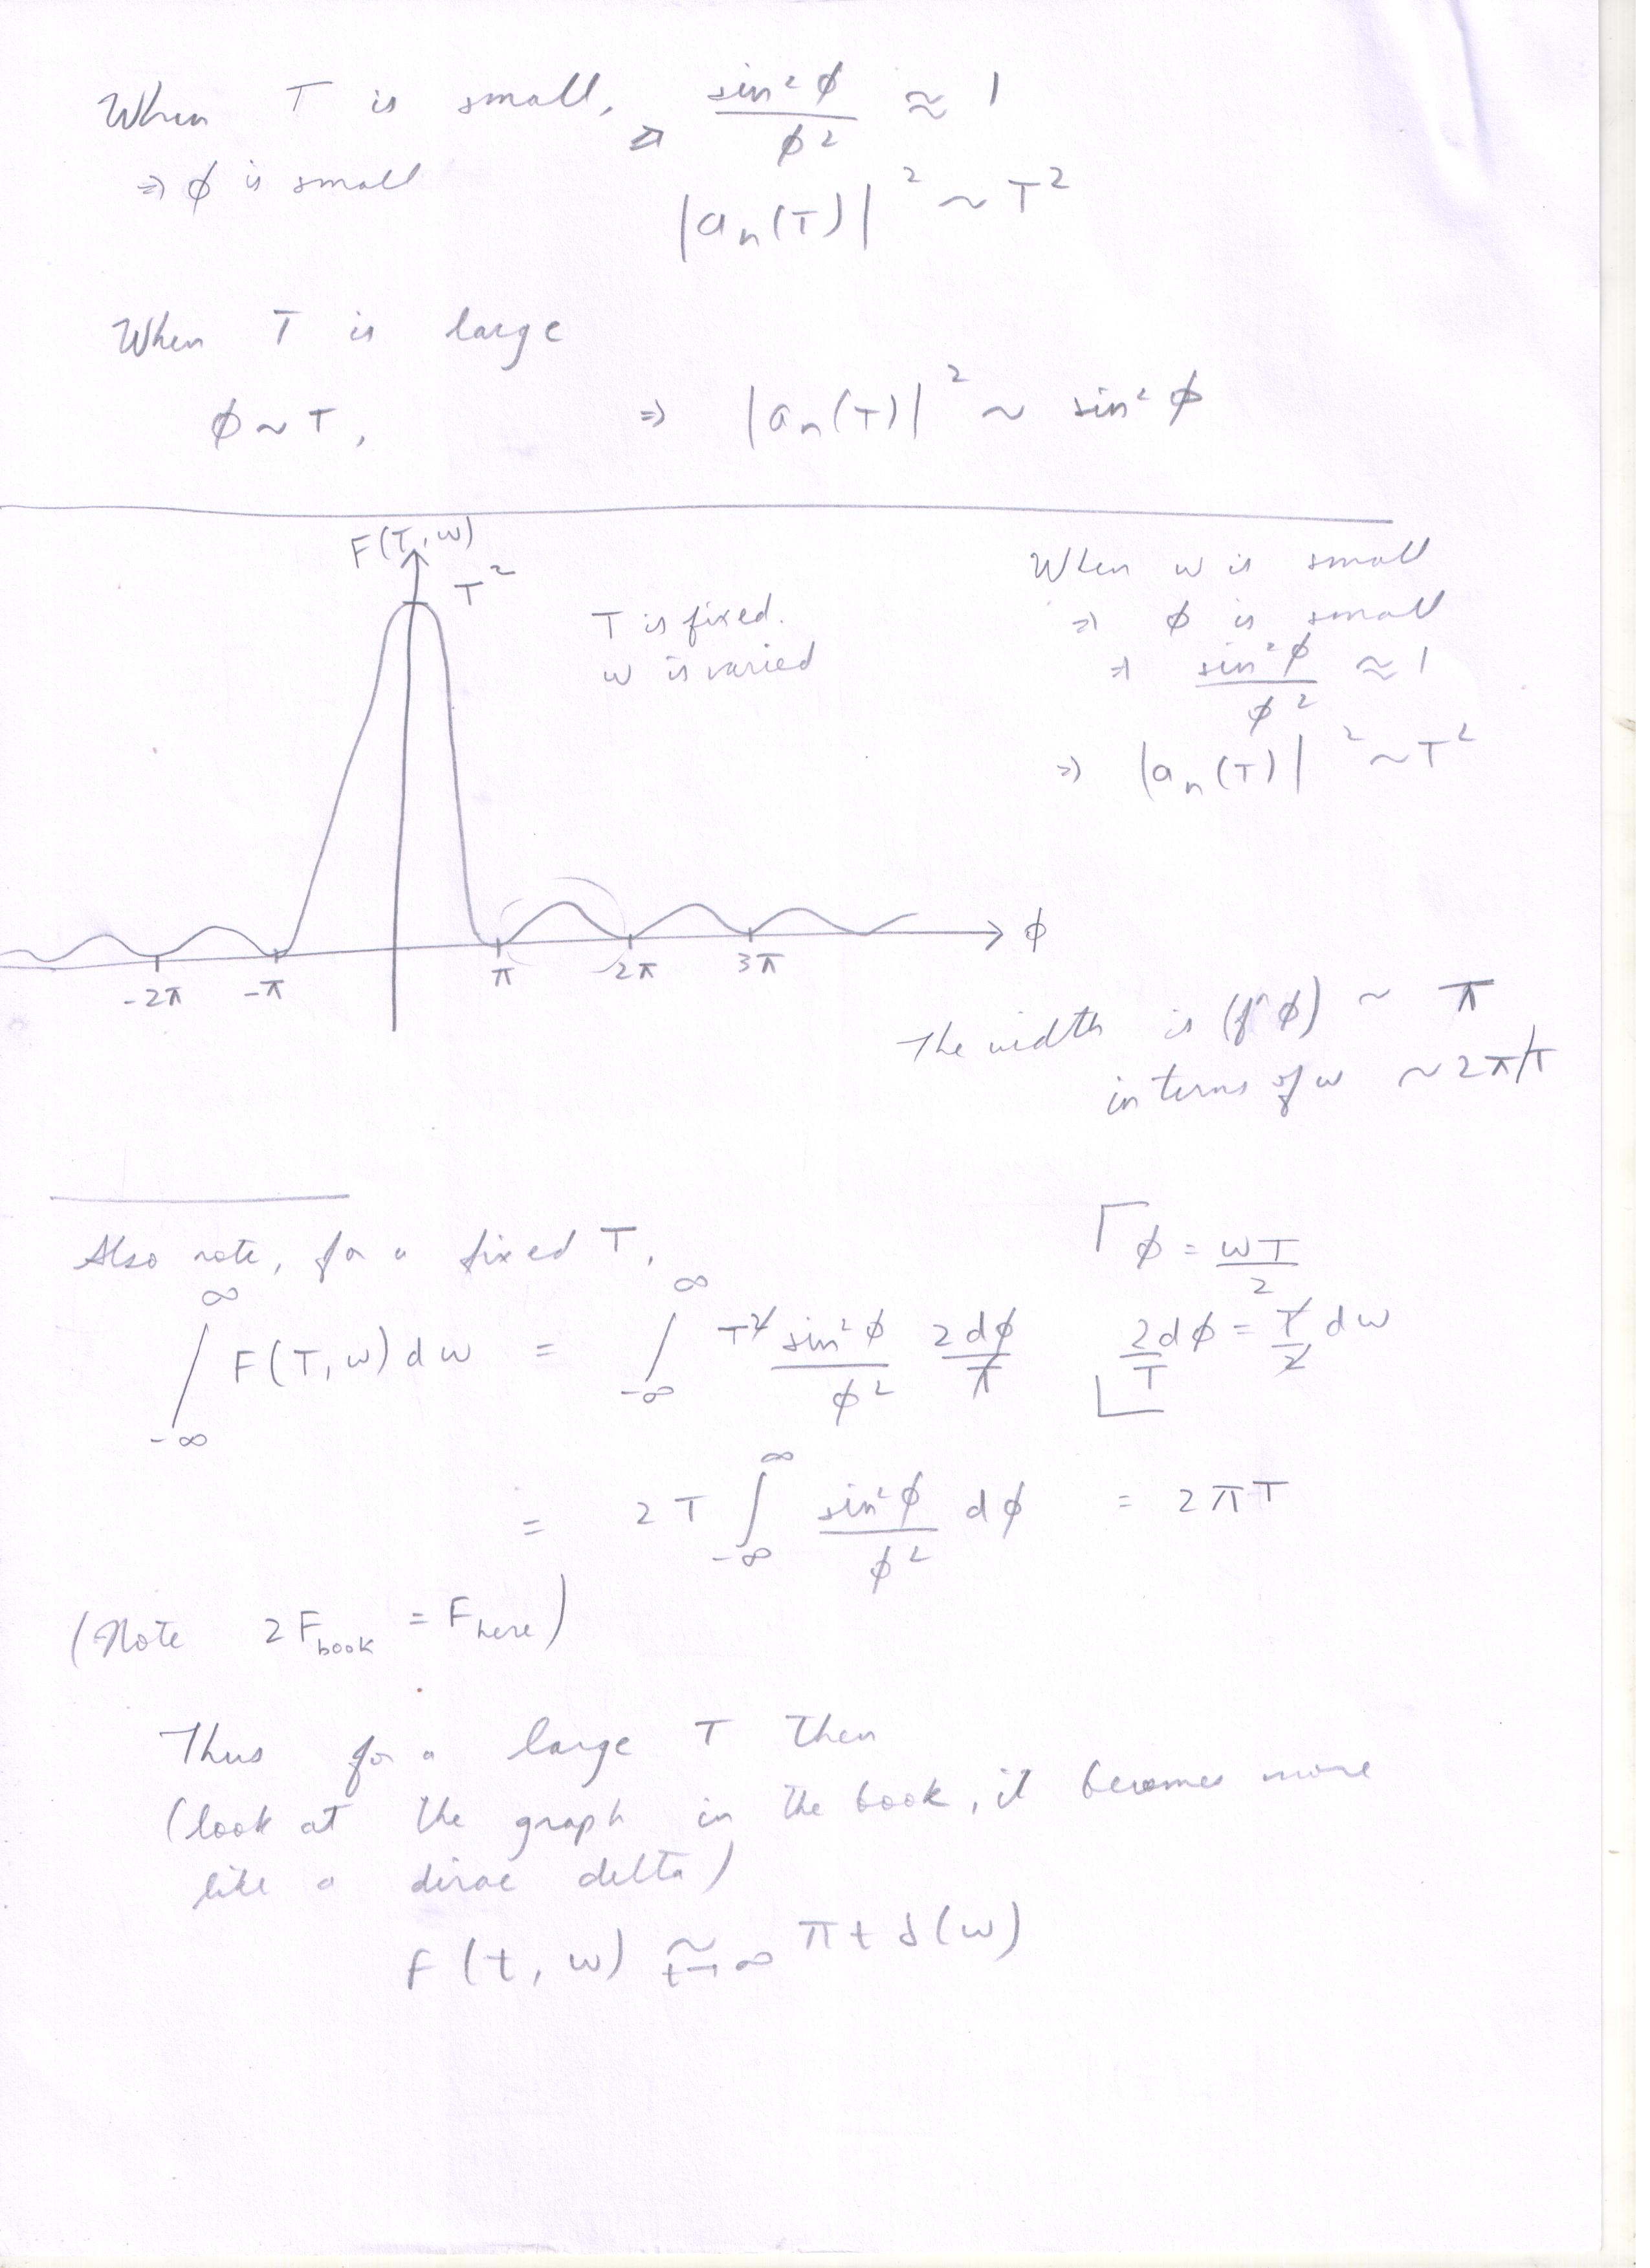 When T is small, ⇒ sin²φ/φ² ≈ 1
⇒ φ is small
|aₙ(T)|² ~ T²
When T is large
φ ~ T, ⇒ |aₙ(T)|² ~ sin²φ
F(T, w)
T²
T is fixed.
w is varied
When w is small
⇒ φ is small
⇒ sin²φ/φ² ≈ 1
⇒ |aₙ(T)|² ~ T²
-2π -π π 2π 3π φ
The width is (of φ) ~ π
in terms of w ~ 2π/T
Also note, for a fixed T,
φ = wT/2
∫_{-∞}^{∞} F(T, w) dw = ∫_{-∞}^{∞} T² sin²φ/φ² 2dφ/T
2dφ/T = T/2 dw
= 2T ∫_{-∞}^{∞} sin²φ/φ² dφ = 2πT
(Note 2F_book = F_here)
Thus for a large T then
(look at the graph in the book, it becomes more
like a dirac delta)
F(t, w) ≈_{t→∞} πt δ(w)